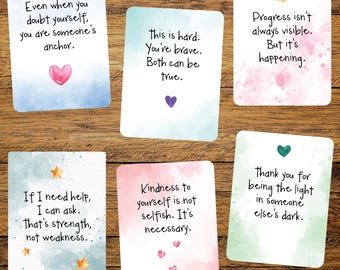 Even when you
doubt yourself,
you are someone's
anchor.
This is hard.
You're brave.
Both can be
true.
Progress isn't
always visible.
But it's
happening.
If I need help,
I can ask.
That's strength,
not weakness.
Kindness to
yourself is not
selfish. It's
necessary.
Thank you for
being the light
in someone
else's dark.